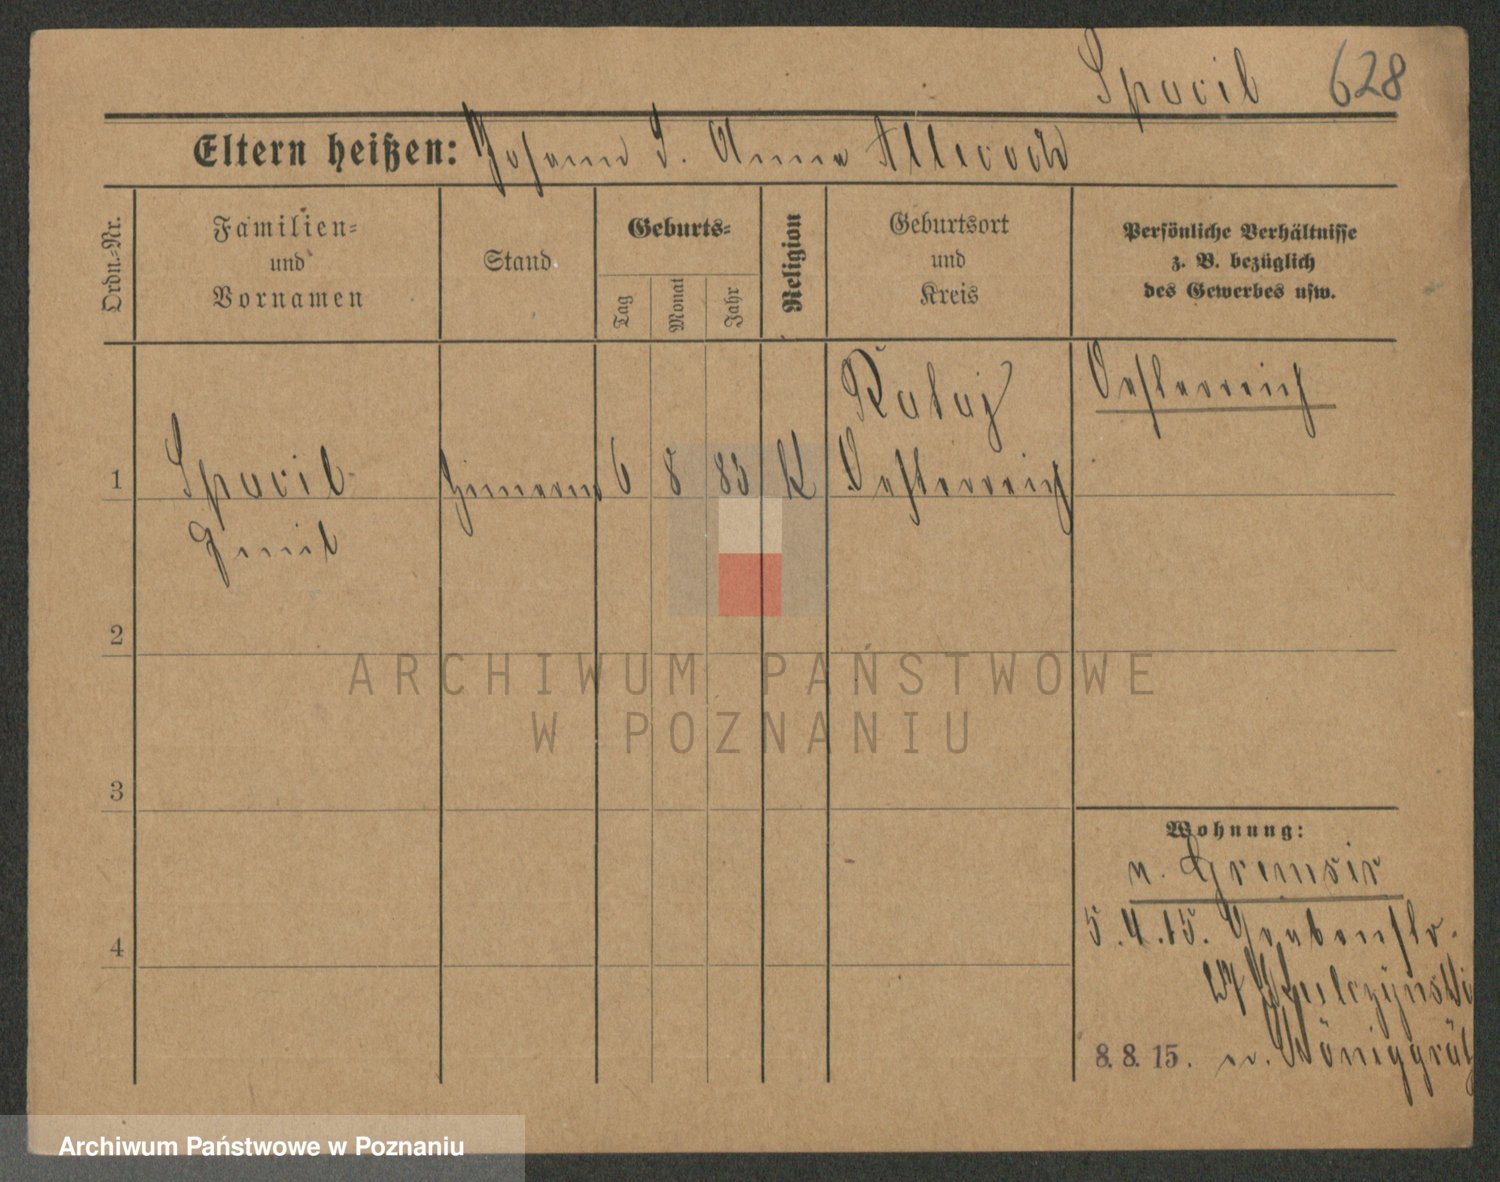 Spacil 628
Eltern heißen: Johann S. Anna
Ordn.-Nr.
Familien-
und
Vornamen
Stand
Geburts-
Tag
Monat
Jahr
Religion
Geburtsort
und
Kreis
Persönliche Verhältnisse
z. B. bezüglich
des Gewerbes usw.
Rataj
Oesterreich
1 Spacil 6 8 83 K Oesterreich
Emil
2
3
Wohnung:
n. Gremsir
5.4.15. Grabenstr.
27
4
8. 8. 15. n. Königgrätz
ARCHIWUM PAŃSTWOWE
W POZNANIU
Archiwum Państwowe w Poznaniu